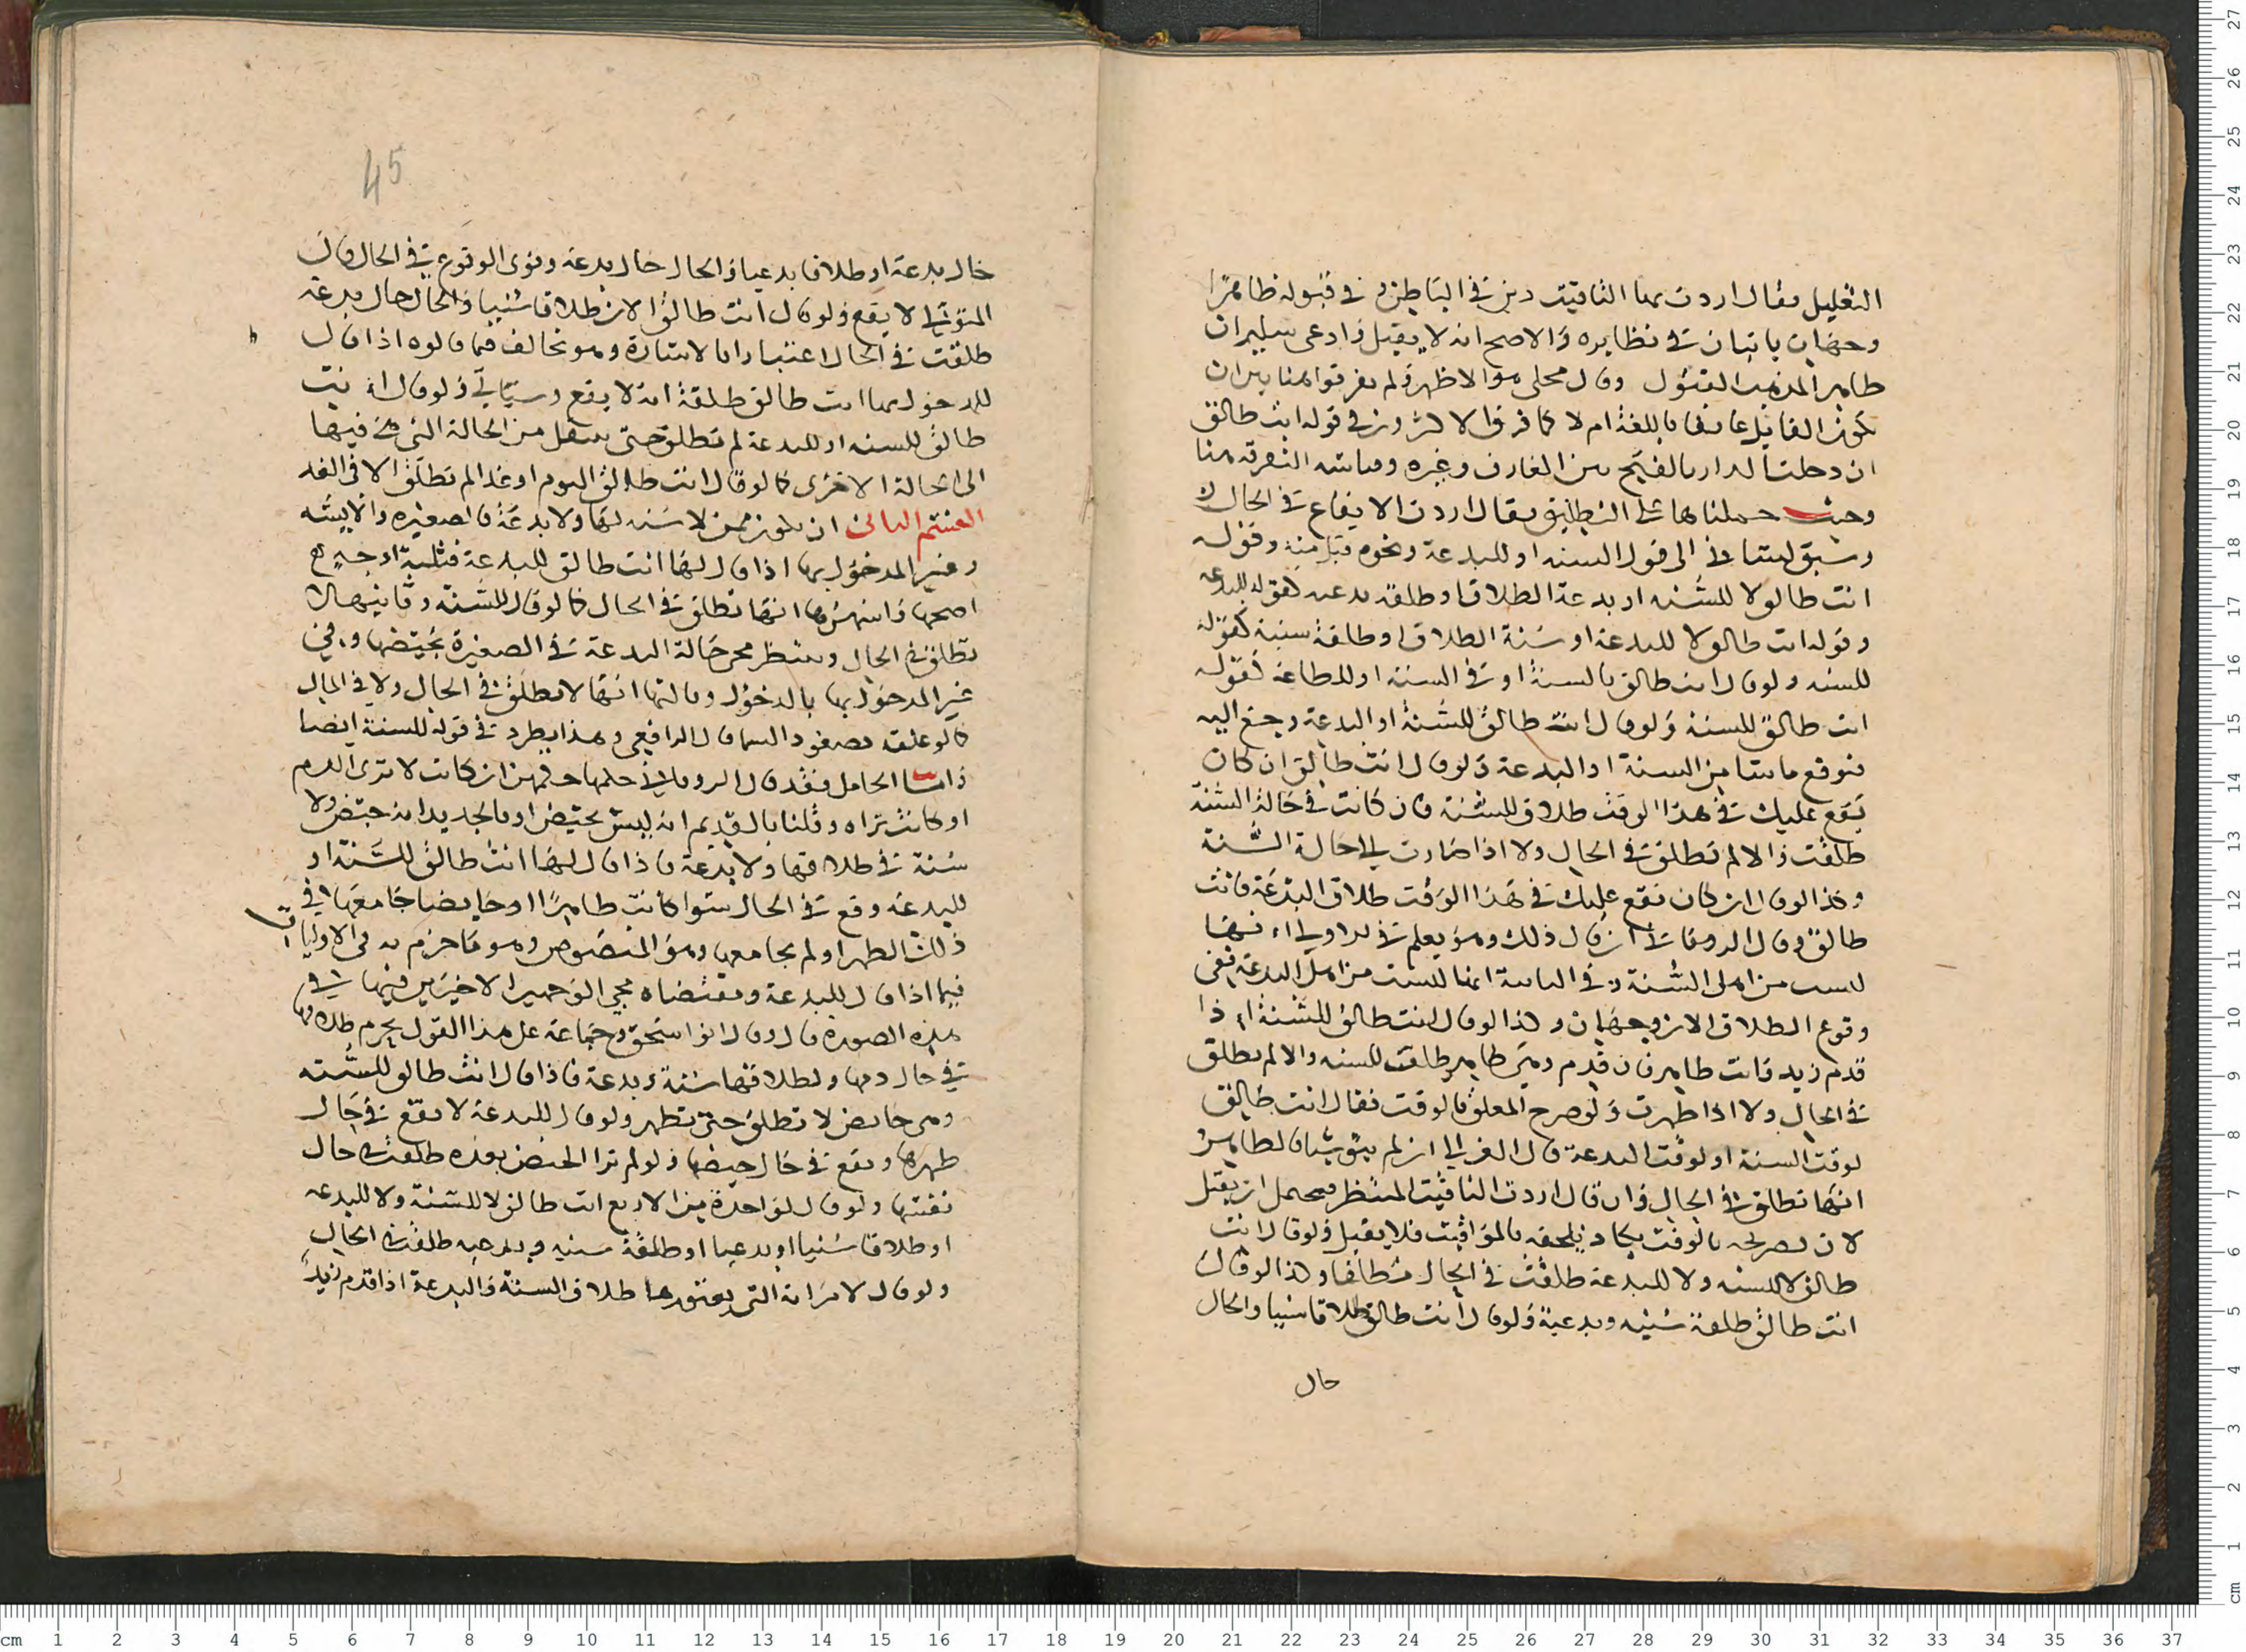 التعليل فقال اردت بهما التاقيت دين في الباطن و في قبوله ظاهرًا
وجهان ياتيان في نظايره والاصح انه لا يقبل وادعى سليم ان
ظاهر المذهب القبول وقال مجلي هو الاظهر ولم يفرقوا هنا بين ان
يكون القايل عارفا باللغة ام لا كما فرق الاكثرون في قوله انت طالق
ان دخلت الدار بالفتح بين العارف وغيره وقياسه التفرقة هنا
وحيث حملناها على التعليق فقال اردت الايقاع في الحال
وسبق لساني الى قول السنه او للبدعة ونحوه قبل منه وقوله
انت طالق لا للسنه او بدعة الطلاق او طلقة بدعيه كقوله للبدعه
وقوله انت طالق لا للبدعة او سنة الطلاق او طلقة سنية كقوله
للسنه ولو قال انت طالق بالسنة او في السنة او للطاعة كقوله
انت طالق للسنة ولو قال انت طالق للسنة او البدعة رجع اليه
فنوقع ما شا من السنة او البدعة ولو قال انت طالق ان كان
يقع عليك في هذا الوقت طلاق للسنة فان كانت في حالة السنة
طلقت والا لم تطلق في الحال ولا اذا صارت الى حالة السنة
وكذا لو قال ان كان يقع عليك في هذا الوقت طلاق البدعة فانت
طالق وقال الروياني ان قال ذلك وهو يعلم في الاولى انها
ليست من اهل السنة وفي الثانية انها ليست من اهل البدعة ففي
وقوع الطلاق الان وجهان وكذا لو قال انت طالق للسنة اذا
قدم زيد فانت طاهر فان قدم وهي طاهر طلقت للسنه والا لم تطلق
في الحال ولا اذا طهرت ولو صرح المعلق بالوقت فقال انت طالق
لوقت السنة او لوقت البدعة قال الغزالي ان لم ينو شيا فالظاهر
انها تطلق في الحال وان قال اردت التاقيت المنتظر فيحتمل ان يقبل
لان تصريحه بالوقت يكاد يلحقه بالمواقيت فلا يقبل ولو قال انت
طالق لا للسنه ولا للبدعة طلقت في الحال مطلقا وكذا لو قال
انت طالق طلقة سنيه وبدعية ولو قال انت طالق طلاقا سنيا والحال
حال
45
حال بدعة او طلاقا بدعيا والحال حال بدعة ونوى الوقوع في الحال قال
المتولي لا يقع ولو قال انت طالق الان طلاقا سنيا والحال حال بدعة
طلقت في الحال اعتبارا بالاشارة وهو يخالف فما قالوه اذا قال
للمدخول بها انت طالق طلقة انه لا يقع وسياتي ولو قال انت
طالق للسنه او للبدعة لم تطلق حتى تنتقل من الحالة التي هي فيها
الى الحالة الاخرى كما لو قال انت طالق اليوم او غدا لم تطلق الا في الغد
القسم الثاني ان يكون ممن لا سنه لها ولا بدعة كالصغيره والايسه
وغير المدخول بها اذا قال لها انت طالق للبدعة فثلثة اوجه
اصحها واشهرها انها تطلق في الحال كما لو قال للسنة وثانيها لا
تطلق في الحال وينتظر مجي حالة البدعة في الصغيرة بحيضها وفي
غير المدخول بها بالدخول وثالثها انها لا تطلق في الحال ولا في المال
كما لو علقه بصعود السما قال الرافعي وهذا يطرد في قوله للسنة ايضا
واما الحامل فقد قال الروياني في حملها حكمهن ان كانت لا ترى الدم
او كانت تراه وقلنا بالقديم انه ليس بحيض او بالجديد انه حيض ولا
سنة في طلاقها ولا بدعة فاذا قال لها انت طالق للسنة او
للبدعة وقع في الحال سوا كانت طاهرًا او حايضا جامعها في
ذلك الطهر او لم يجامعها وهو المنصوص وهو ما جزم به في الاوليات
فيما اذا قال للبدعة ومقتضاه مجي الوجهين الاخيرين فيها في
هذه الصورة قال وقال ابو اسحق وجماعة على هذا القول يحرم طلاقها
في حال دمها ولطلاقها سنة وبدعة فاذا قال انت طالق للسنه
وهي حايض لا تطلق حتى تطهر ولو قال للبدعة لا يقع في حال
طهرها ويقع في حال حيضها ولو لم ترا الحيض بعده طلقت في حال
نفاسها ولو قال لواحدة من الاربع انت طالق لا للسنة ولا للبدعه
او طلاقا سنيا او بدعيا او طلقة سنيه وبدعيه طلقت في الحال
ولو قال لامراته التي يعتورها طلاق السنة والبدعة اذا قدم زيد